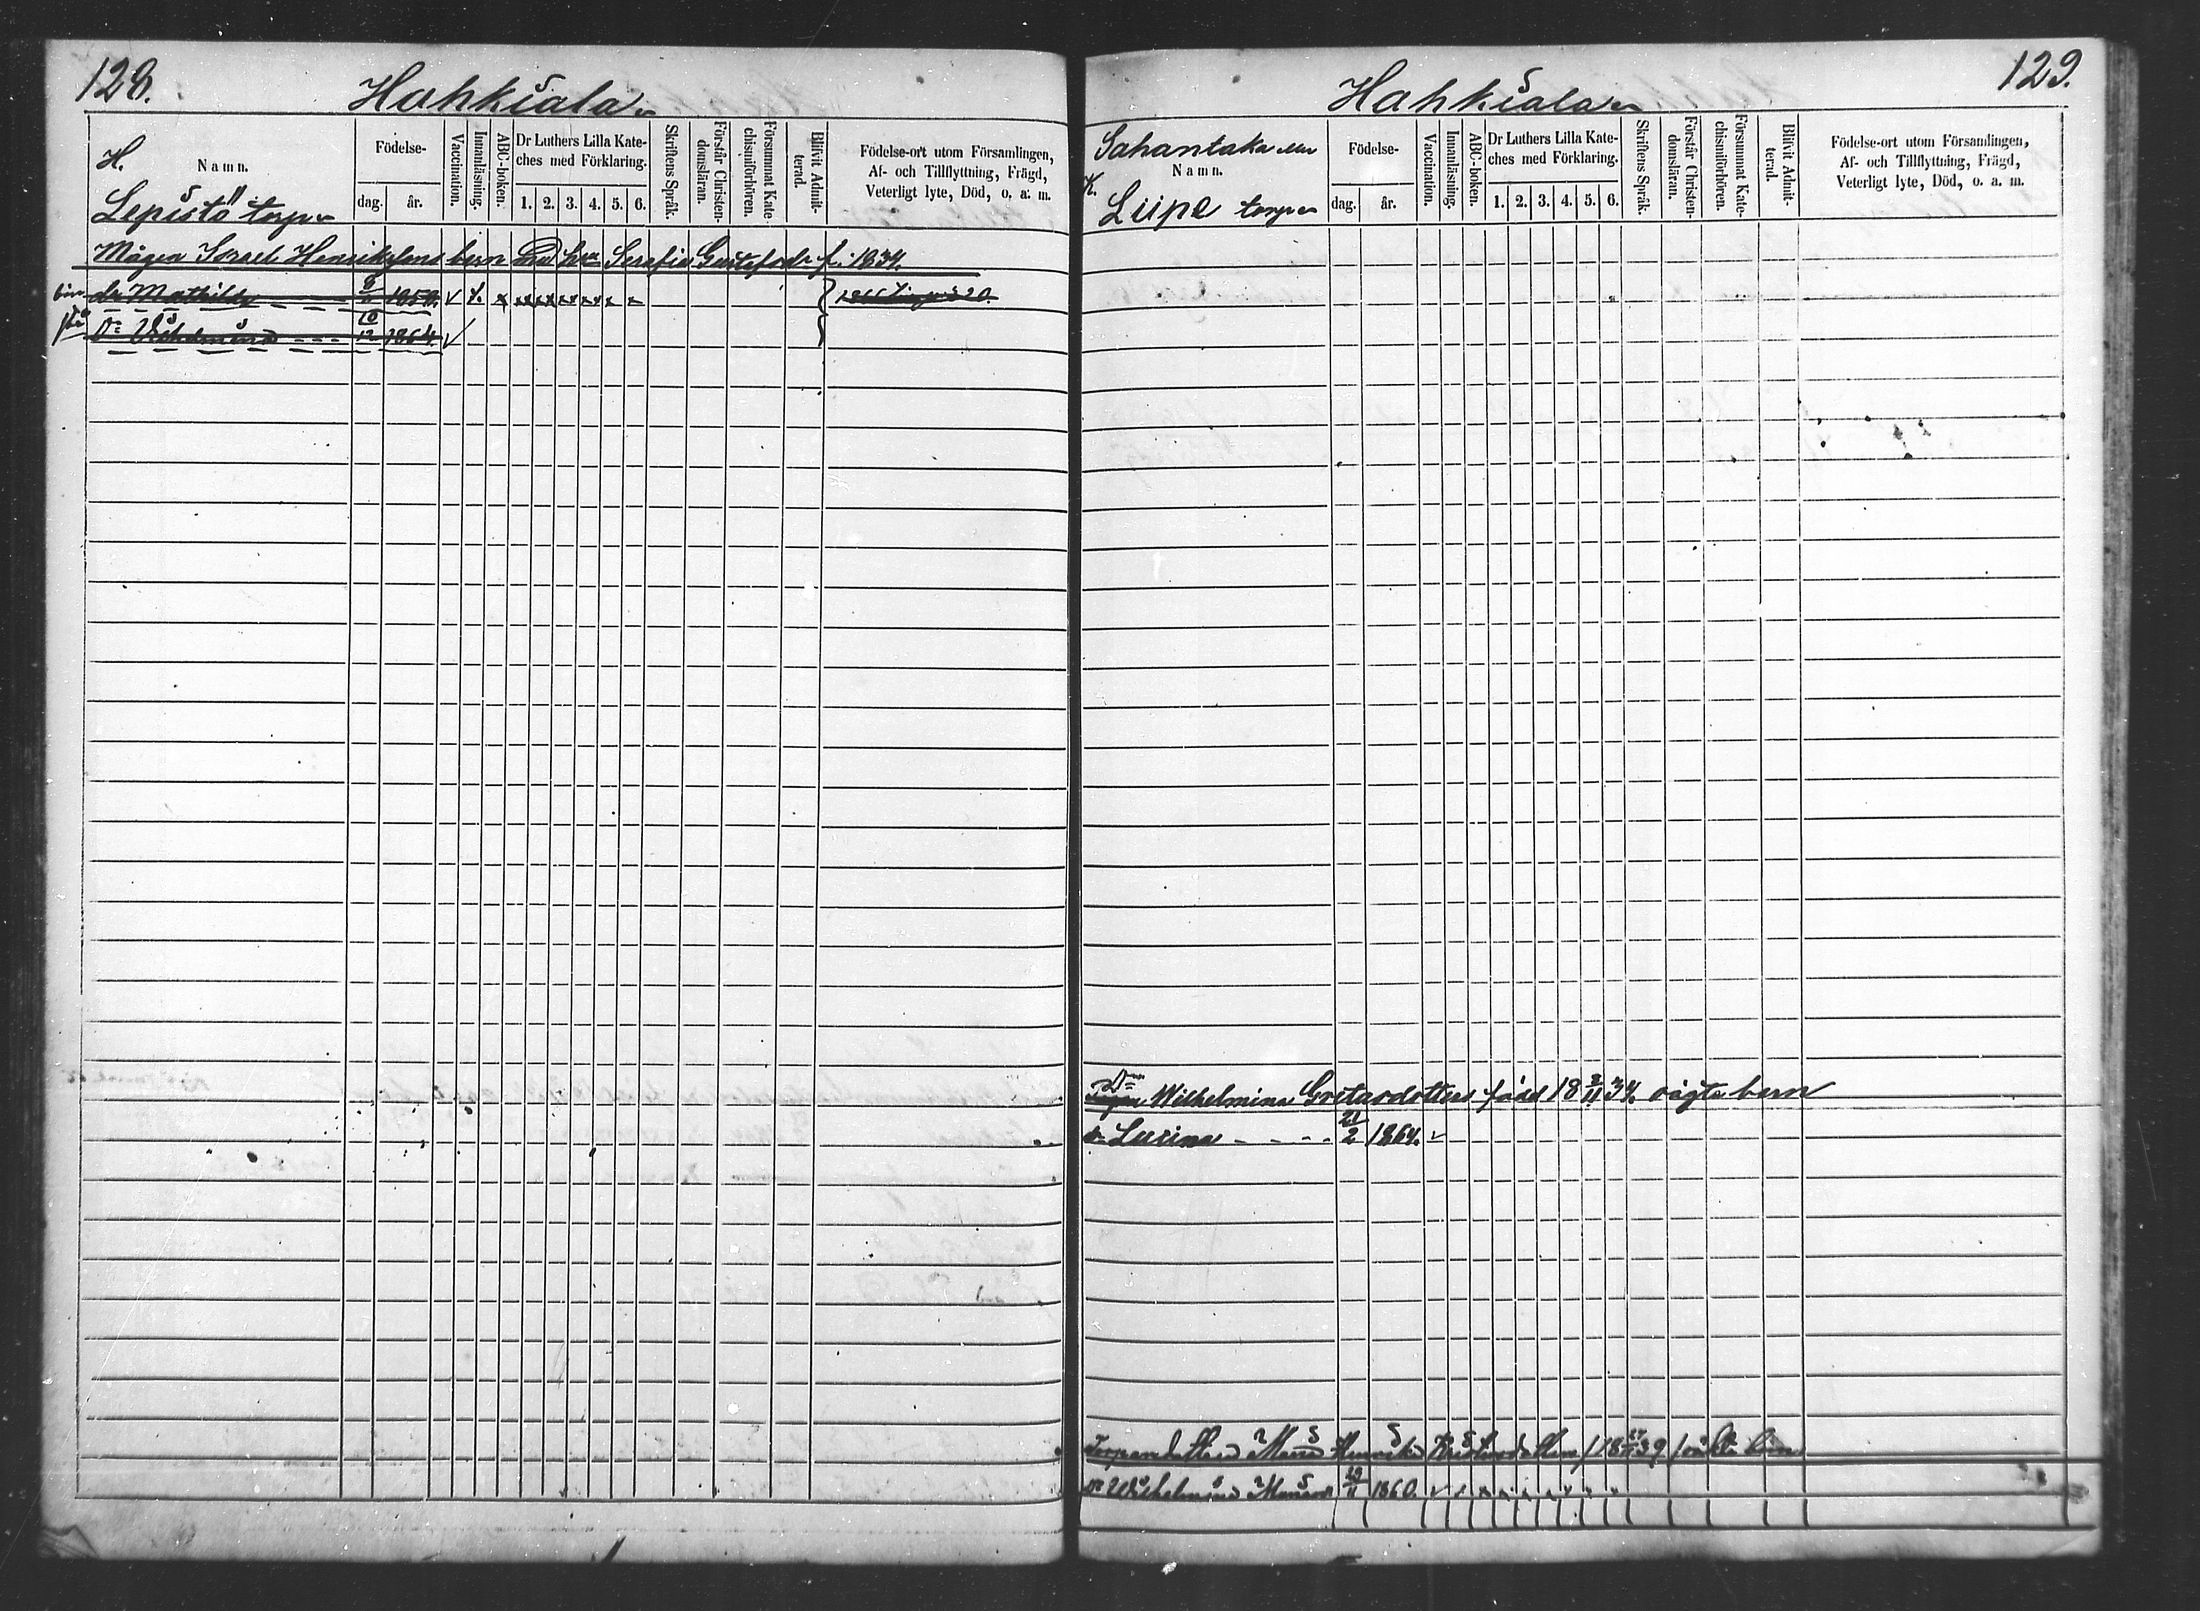 128.
Hahkiala
H.
Namn.
Lepistö torp
Födelse-
dag.
år.
Vaccination.
Innanläsning.
ABC-boken.
Dr Luthers Lilla Kate-
ches med Förklaring.
1. 2. 3. 4. 5. 6.
Skriftens Språk.
Förstår Christen-
domsläran.
Försummat Kate-
chismiförhören.
Blifvit Admit-
terad.
Födelse-ort utom Församlingen,
Af- och Tillflyttning, Frägd,
Veterligt lyte, Död, o. a. m.
Mågen Israel Henrikssons barn Serafia Gustafsdr f. 1834.
dr Mathilda 1858.
Dr Vilhelmina - - - 10/12 1864.
129.
Hahkiala
Sahantaka
Namn.
K.
Liipe torp
Födelse-
dag.
år.
Vaccination.
Innanläsning.
ABC-boken.
Dr Luthers Lilla Kate-
ches med Förklaring.
1. 2. 3. 4. 5. 6.
Skriftens Språk.
Förstår Christen-
domsläran.
Försummat Kate-
chismiförhören.
Blifvit Admit-
terad.
Födelse-ort utom Församlingen,
Af- och Tillflyttning, Frägd,
Veterligt lyte, Död, o. a. m.
Wilhelmina Gustavdotters född 18 2/11 34. oägta barn
dr Lusina - - - - 21/2 1864.
Maria Henrika 39 barn
dr Wilhelmina Maria 1860.